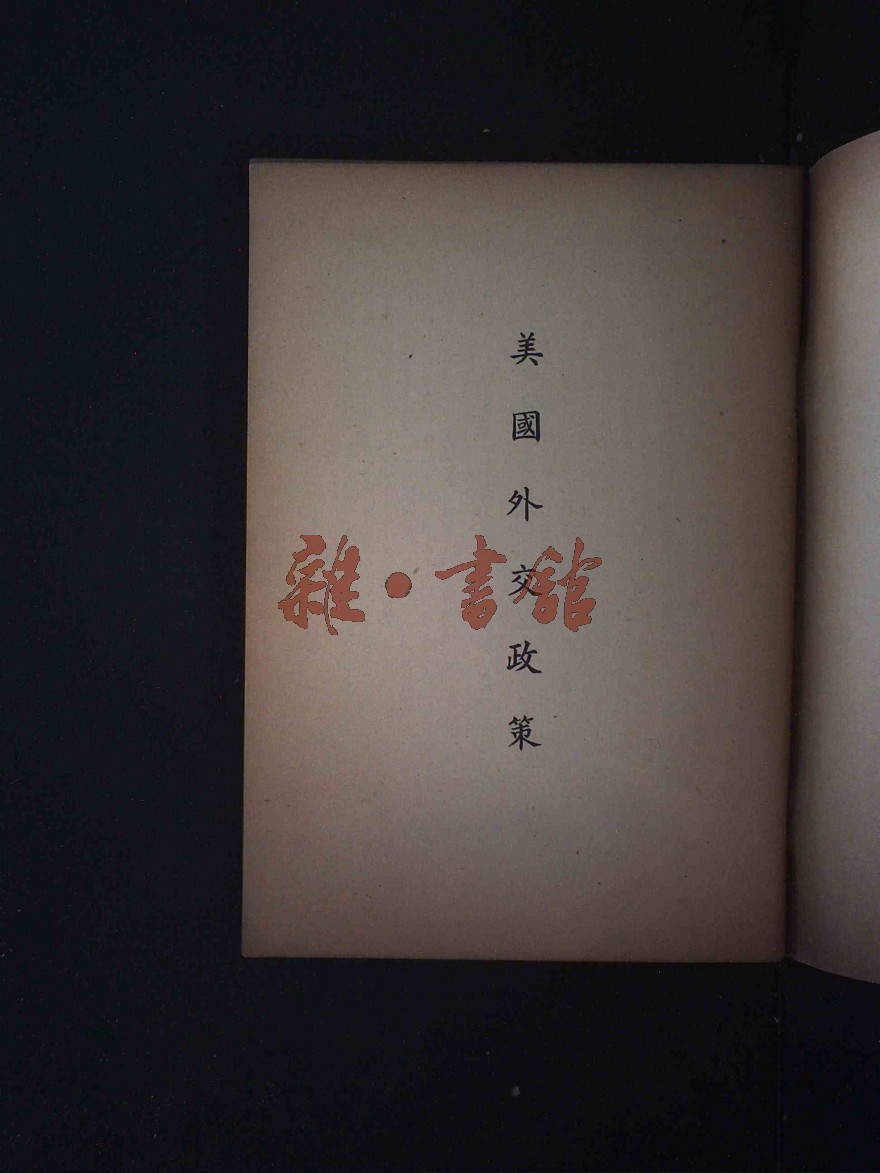 美國外交政策
雜·書館